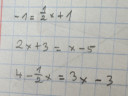 -1 = 1/2 x + 1
2x + 3 = x - 5
4 - 1/2 x = 3x - 3